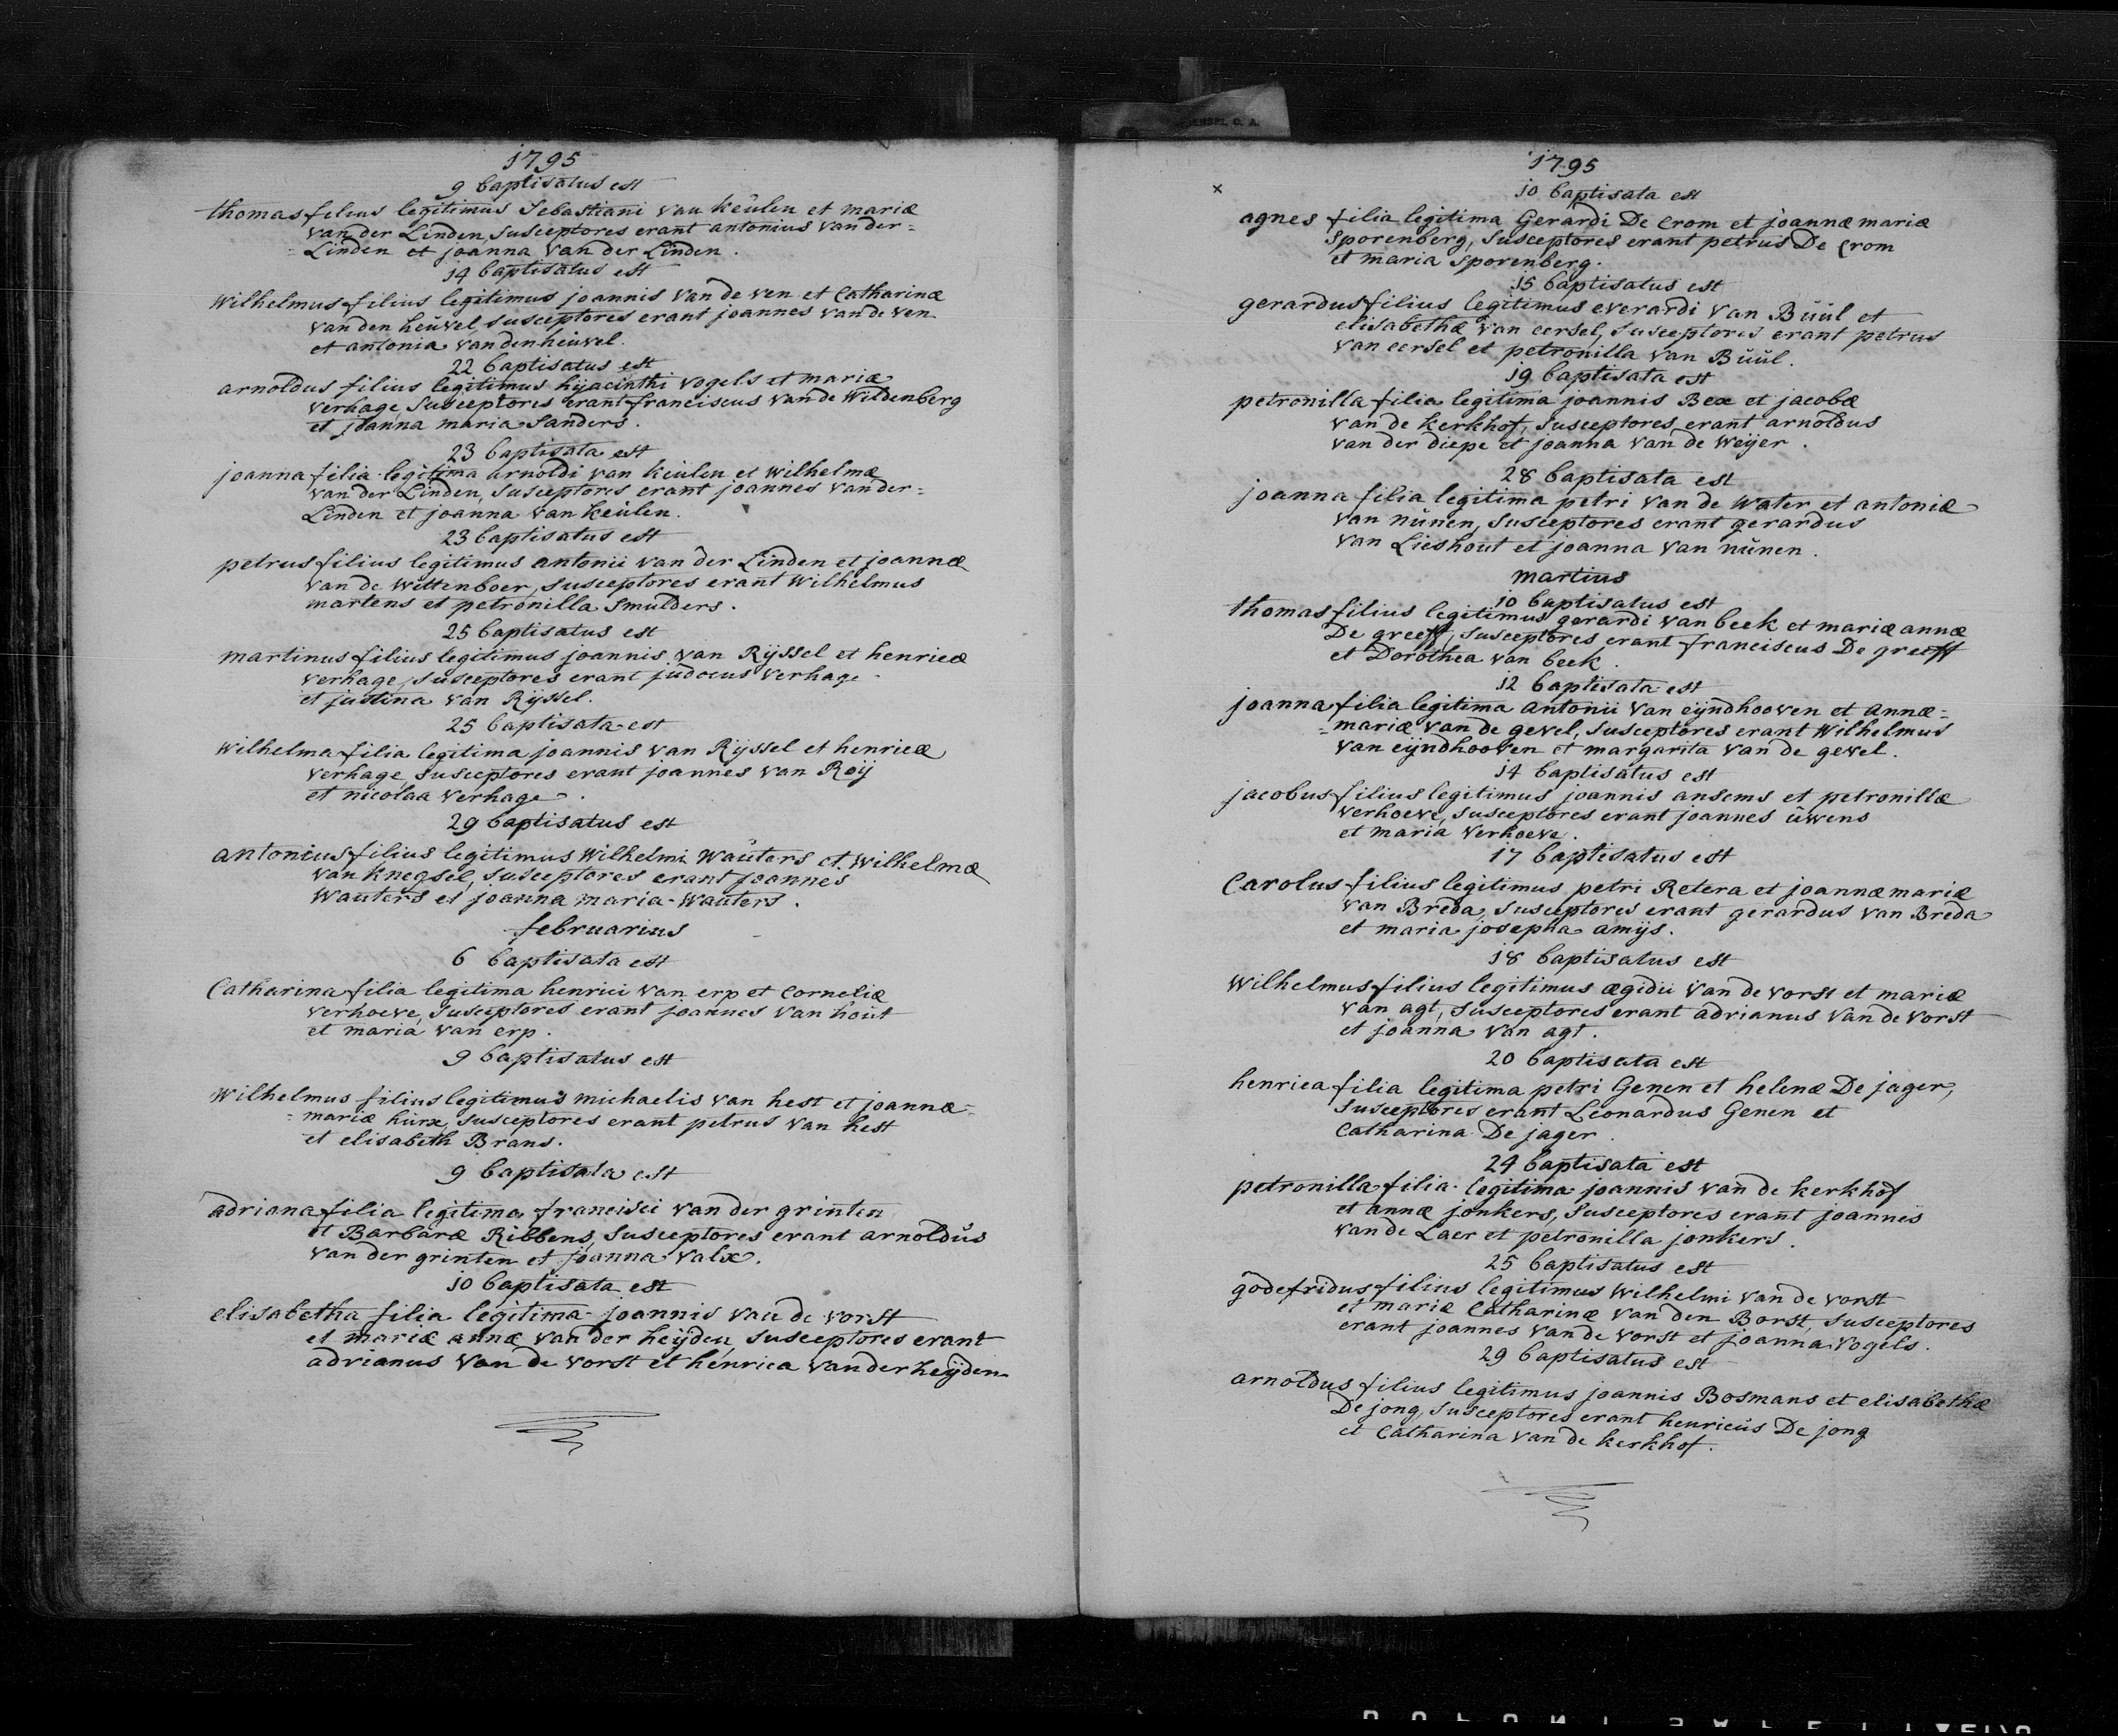 1795
9 baptisatus est
thomas filius legitimus Sebastiani van keülen et mariæ
van der Linden, susceptores erant antonius van der=
=Linden et joanna van der Linden.
14 baptisatus est
Wilhelmus filius legitimus joannis van de ven et Catharinæ
van den heüvel, susceptores erant joannes van de ven
et antonia van den heüvel.
22 baptisatus est
arnoldus filius legitimus hijacinthi vogels et mariæ
verhage, Susceptores erant franciscus van de Wildenberg
et joanna maria Sanders.
23 baptisata est
joanna filia legitima arnoldi van keülen et Wilhelmæ
van der Linden, susceptores erant joannes van der=
Linden et joanna van keülen.
23 baptisatus est
petrus filius legitimus antonii van der Linden et joannæ
van de Wittenboer, susceptores erant Wilhelmus
martens et petronilla Smulders.
25 baptisatus est
martinus filius legitimus joannis van Rijssel et henricæ
verhage, susceptores erant jüdocus verhage
et justina van Rijssel.
25 baptisata est
Wilhelma filia legitima joannis van Rijssel et henricæ
verhage, susceptores erant joannes van Roij
et nicolaa verhage.
29 baptisatus est
antonius filius legitimus Wilhelmi Waüters et Wilhelmæ
van knegsel, susceptores erant joannes
Wauters et joanna maria Wauters.
februarius
6 baptisata est
Catharina filia legitima henrici van erp et Corneliæ
verhoeve, susceptores erant joannes van hout
et maria van erp.
9 baptisatus est
Wilhelmus filius legitimus michaelis van hest et joannæ=
=mariæ hürx, susceptores erant petrus van hest
et elisabeth Brans.
9 baptisata est
adriana filia legitima francisci van der grinten
et Barbaræ Ribbens, susceptores erant arnoldüs
van der grinten et joanna valx.
10 baptisata est
elisabetha filia legitima joannis van de vorst
et mariæ annæ van der heijden, susceptores erant
adrianus van de vorst et henrica van der heijden
1795
x
10 baptisata est
agnes filia legitima Gerardi De Crom et joannæ mariæ
Sporenberg, susceptores erant petrus De Crom
et maria Sporenberg.
15 baptisatus est
gerardus filius legitimus everardi van Büül et
elisabethæ van eersel, susceptores erant petrus
van eersel et petronilla van Büül.
19 baptisata est
petronilla filia legitima joannis Bex et jacobæ
van de kerkhof, susceptores erant arnoldus
van der diepe et joanna van de Weijer.
28 baptisata est
joanna filia legitima petri van de Water et antoniæ
van nünen, susceptores erant gerardus
van Lieshout et joanna van nünen.
martius
10 baptisatus est
thomas filius legitimus gerardi van beek et mariæ annæ
De greeff, susceptores erant franciscus De greeff
et Dorothea van beek.
12 baptisata est
joanna filia legitima antonii van eijndhooven et annæ=
=mariæ van de gevel, susceptores erant Wilhelmus
van eijndhooven et margarita van de gevel.
14 baptisatus est
jacobus filius legitimus joannis ansems et petronillæ
verhoeve, susceptores erant joannes üwens
et maria verhoeve.
17 baptisatus est
Carolus filius legitimus petri Retera et joannæ mariæ
van Breda, susceptores erant gerardus van Breda
et maria josepha amijs.
18 baptisatus est
Wilhelmus filius legitimus ægidii van de vorst et mariæ
van agt, susceptores erant adrianus van de vorst
et joanna van agt.
20 baptisata est
henrica filia legitima petri Genen et helenæ De jager,
susceptores erant Leonardus Genen et
Catharina De jager.
24 baptisata est
petronilla filia legitima joannis van de kerkhof
et annæ jonkers, susceptores erant joannes
van de Laer et petronilla jonkers.
25 baptisatus est
godefridus filius legitimus Wilhelmi van de vorst
et mariæ Catharinæ van den Borst susceptores
erant joannes van de vorst et joanna Vogels.
29 baptisatus est
arnoldus filius legitimus joannis Bosmans et elisabethæ
De jong, susceptores erant henricüs De jong
et Catharina van de kerkhof.